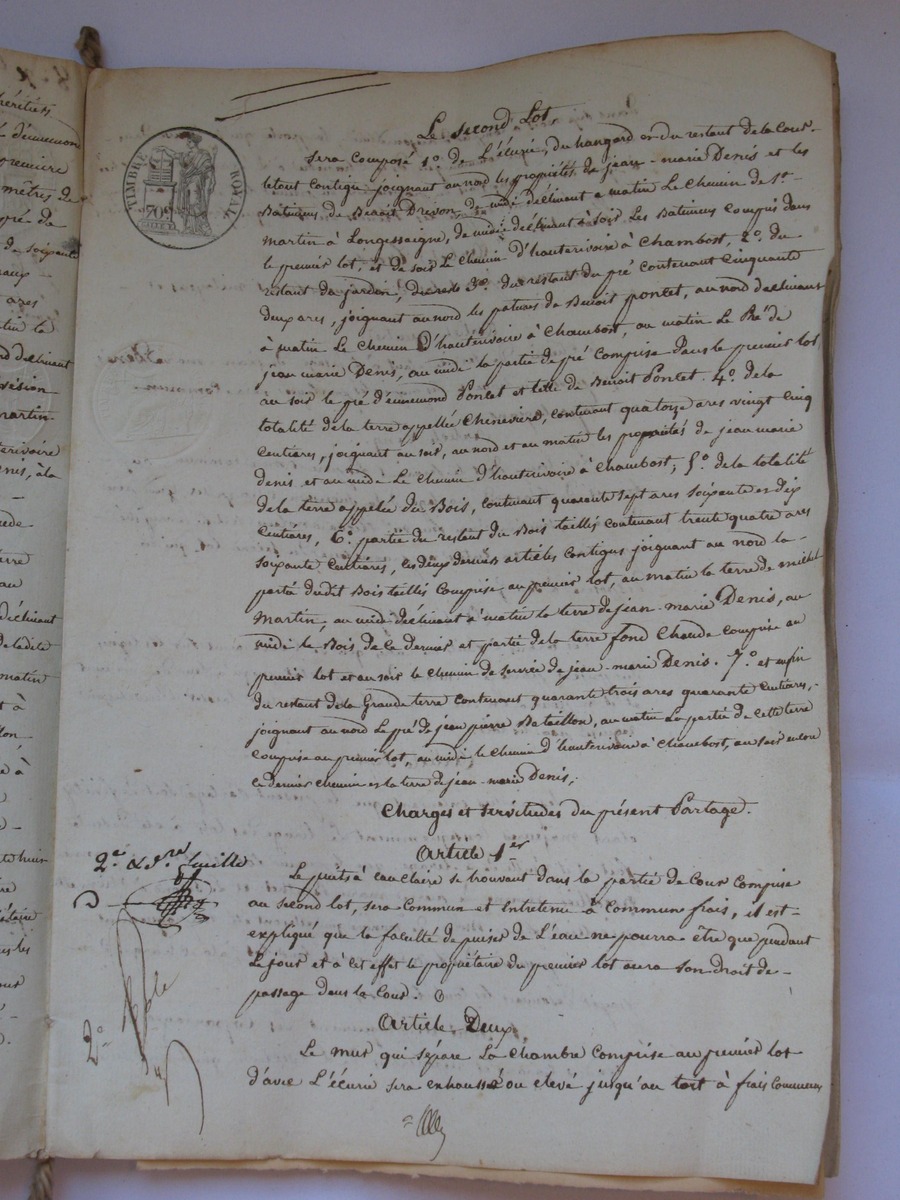 héritiers
d'ennemond
première
mètres de
pré de
de soixante
ares
matin le
nord déclinant
division
martin
hauterivoire
Denis, à la
terre
au
déclinant
de la dite
matin
à
huit
TIMBRE ROYAL
Le second Lot,
sera composé 1.° de L'écurie, du hangard et du restant de la Cour
le tout contigu joignant au nord les propriétés de jean-marie Denis et les
Batimens de Benoit Drivon, de midi déclinant a matin Le chemin de St-
martin à Longessaigne, de midi déclinant à soir Les Batimens compris dans
le premier lot, et de soir Le chemin d'hauterivoire à Chambost, 2.° du
restant du jardin, 3.° du restant du pré contenant cinquante
deux ares, joignant au nord les patures de Benoit pontet, au nord declinant
à matin Le chemin d'hauterivoire à Chambost, au matin Le Pré de
jean marie Denis, au midi la partie de pré comprise dans le premier lot
au soir le pré d'ennemond Pontet et celle de Benoit Pontet. 4.° de la
totalité de la terre appellée Chenevière, contenant quatorze ares vingt cinq
Centiares, joignant au soir, au nord et au matin les propriétés de jean marie
denis et au midi Le chemin d'hauterivoire à Chambost; 5.° de la totalité
de la terre appelée du Bois, contenant quarante sept ares soixante et dix
centiares, 6.° partie du restant du Bois taillis contenant trente quatre ares
soixante centiares, les deux derniers articles contigus joignant au nord la
partie dudit Bois taillis comprise au premier lot, au matin la terre de michel
martin, au midi déclinant à matin la terre de jean-marie Denis, au
midi le Bois de ce dernier et partie de la terre fond Chaude comprise au
premier lot et au soir le chemin de servie de jean-marie Denis. 7.° et enfin
du restant de la Grande terre contenant quarante trois ares quarante Centiares,
joignant au nord Le pré de jean pierre Bataillon, au matin La partie de cette terre
comprise au premier lot, au midi le chemin d'hauterivoire à Chambost, au soir encore
ce dernier chemin et la terre de jean-marie Denis,
Charges et servitudes du présent Partage.
Article 1er
Le puits à eau claire se trouvant dans la partie de Cour comprise
au second lot, sera commun et entretenu à commun frais, il est
expliqué que la faculté de puiser de L'eau ne pourra être que pendant
Le jour et à cet effet le propriétaire du premier lot aura son droit de
passage dans la Cour.
Article Deux
Le mur qui sépare La chambre comprise au premier lot
d'avec L'écurie sera exhaussé ou elevé jusqu'au tort à frais communs
2.e & d.re feuille
2.°